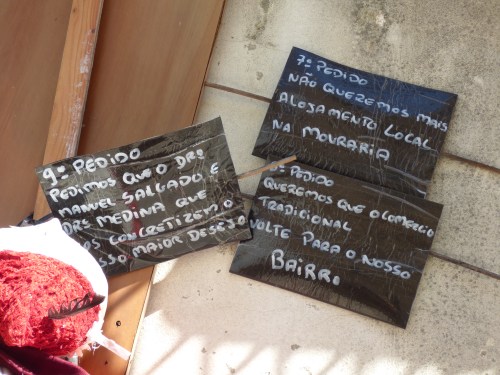 9º PEDIDO
PEDIMOS QUE O DRº
MANUEL SALGADO E
DRº MEDINA QUE
CONCRETIZEM O
MAIOR DESEJO
7º PEDIDO
NÃO QUEREMOS MAIS
ALOJAMENTO LOCAL
NA MOURARIA
PEDIDO
QUEREMOS QUE O COMERCIO
TRADICIONAL
VOLTE PARA O NOSSO
BAIRRO